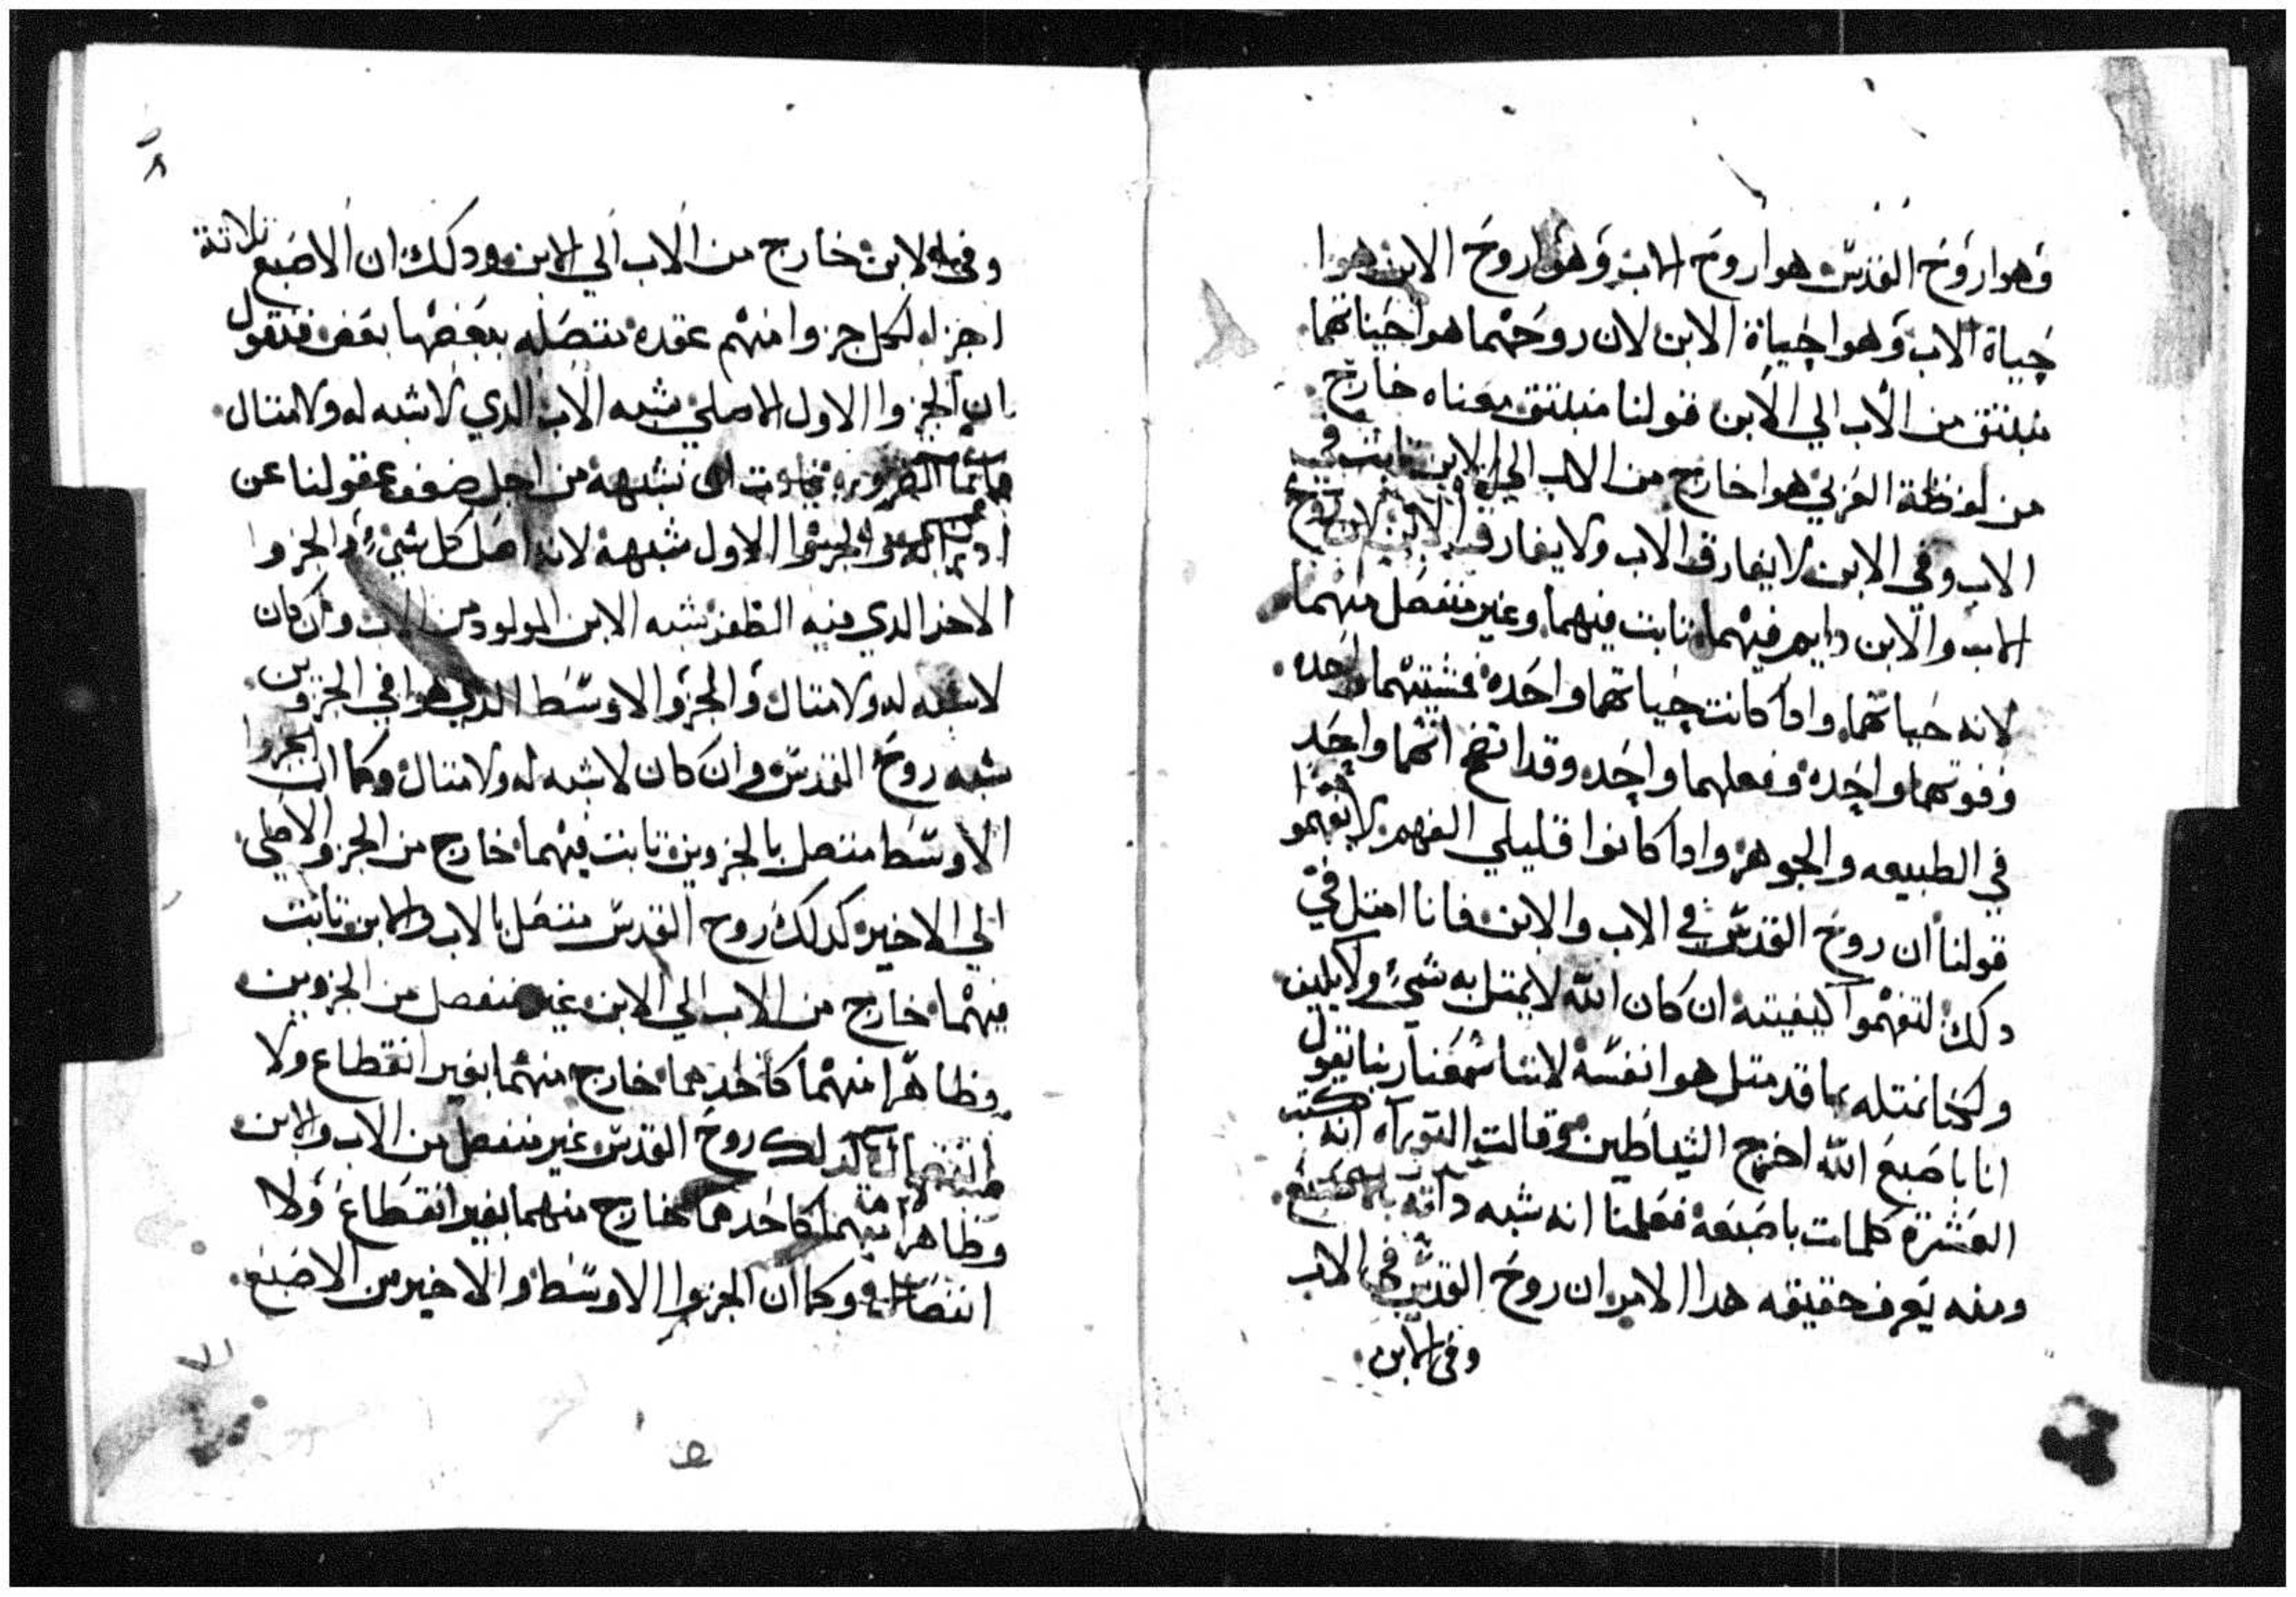 وهوا روح القدس هوا روح الاب وهوا روح الابن هوا
حياة الاب وهوا حياة الابن لان روحهما هوا حياتهما
منبتق من الاب الي الابن قولنا منبتق معناه خارج
من لفظة العربي هوا خارج من الاب الي الابن تابت في
الاب وفي الابن لا يفارق الاب ولا يفارق الابن لان روح
الاب والابن دايم فيهما تابت فيهما وغير منفصل منهما
لانه حياتهما وادا كانت حياتهما واحده فمشيتهما واحده
وقوتهما واحده وفعلهما واحده وقد اتضح انهما واحد
في الطبيعه والجوهر وادا كانوا قليلي الفهم لا يفهموا
قولنا ان روح القدس في الاب والابن فانا امتل في
دلك لتفهموا كيفيته ان كان الله لا يمتل به شيء ولا يليق
ولكنا نمتله بما قد متل هوا نفسه لاننا سمعنا ربنا يقول
انا باصبع الله اخرج الشياطين وقالت التوراه انه كتب
العشرة كلمات باصبعه فعلمنا انه شبه داته
ومنه يعرف حقيقه هدا الامر ان روح القدس في الاب
وفي الابن
وفي الابن خارج من الاب الي الابن ودلك ان الاصبع تلاتة
اجزاء لكل جزوا منهم عقده تتصل بعضها بعض فنقول
ان الجزوا الاول الاصلي يشبه الاب الدي لا شبه له ولا متال
الضروره ان نشبهه من اجل ضعف عقولنا عن
الاول شبهه لانه اصل كل شيء والجزوا
الاخر الدي فيه الظفر شبه الابن المولود من الاب وان كان
لا شبه له ولا متال والجزوا الاوسط الدي هوا في الجزوين
شبه روح القدس وان كان لا شبه له ولا متال وكما ان الجزوا
الاوسط متصل بالجزوين تابت فيهما خارج من الجزوا الاصلي
الي الاخير كدلك روح القدس متصل بالاب والابن تابت
فيهما خارج من الاب الي الابن غير منفصل من الجزوين
وظاهرا منهما كاحدهما خارج منهما بغير انقطاع ولا
انفصال كدلك روح القدس غير منفصل من الاب والابن
وظاهرا منهما كاحدهما خارج منهما بغير انقطاع ولا
انفصال وكما ان الجزوا الاوسط والاخير من الاصبع